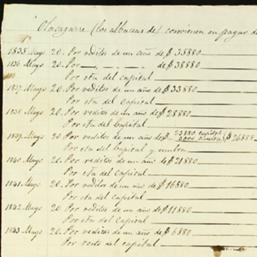 Olacagarre (los albaceas del convienen en pagar de
1835 Mayo 20. Por reditos de un año de $ 38880
1836 Mayo 20. Por de $ 38880
Por cta del capital
1837 Mayo 20. Por reditos de un año de $ 33880
Por cta del capital
1838 Mayo 20. Por reditos de un año de $ 28880
Por cta del Capital
1839 Mayo 20 Por reditos de un año de $ 26888
Por cta del Capital y
1840 Mayo 20. Por reditos de un año de $ 21880
Por cta del capital
1841 Mayo 20. Por reditos de un año de $ 16880
Por cta del Capital
1842 Mayo 20. Por reditos de un año de $ 11880
Por cta del Capital
1843 Mayo 20. Por reditos de un año de $ 6880
Por resto del capital